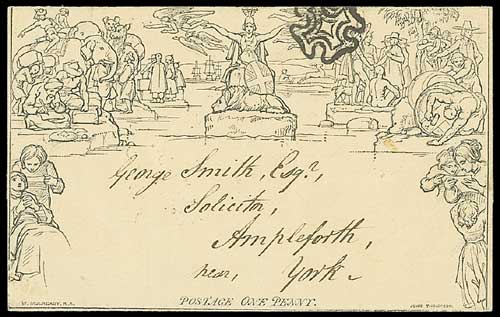 George Smith, Esqr.,
Solicitor,
Ampleforth,
near, York
POSTAGE ONE PENNY.
W. MULREADY, R.A.
JOHN THOMPSON